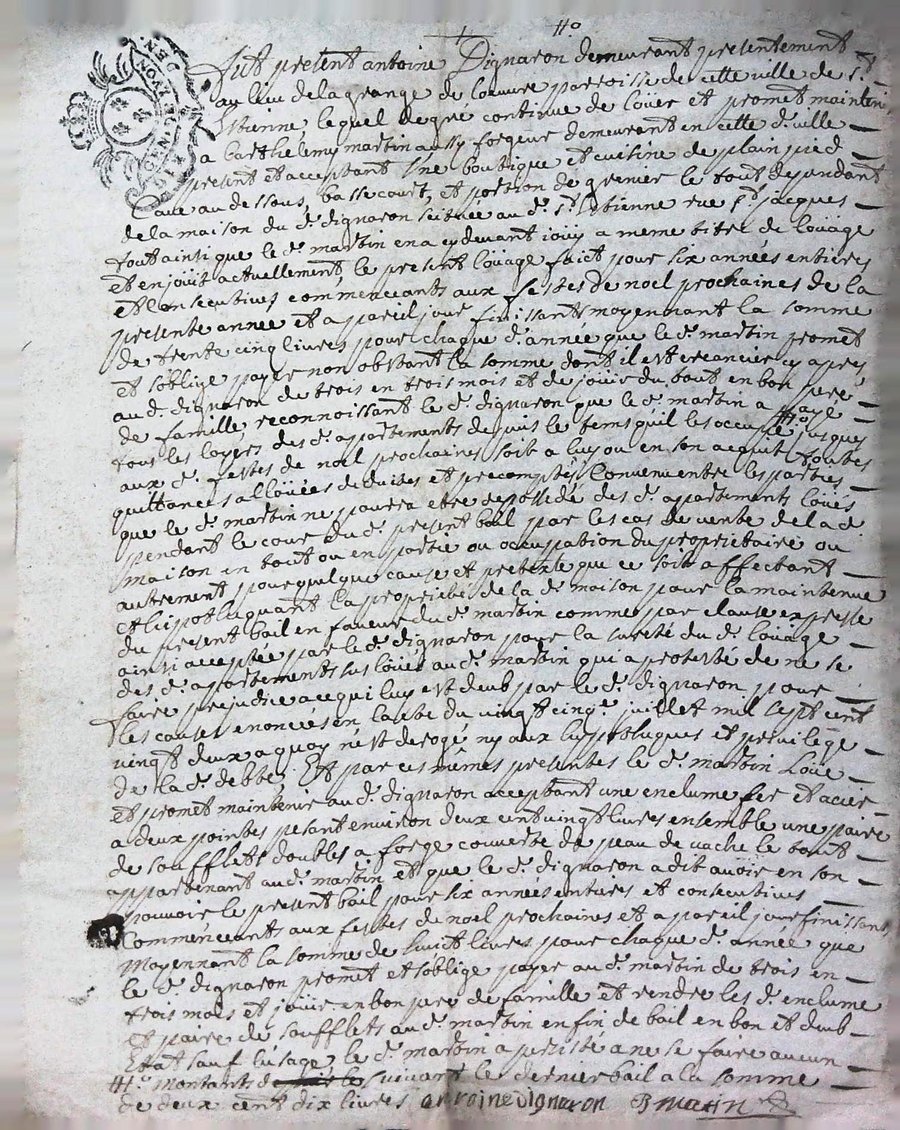 #o
GEN. DE LYON
Fut present antoine Dignaron demeurant presentement
au lieu de la grange de loeuvre parroisse de cette ville de st
Estienne, lequel de gré continue de loüer et promet maintenir
a barthelemy martin aussy forgeur demeurant en cette d. ville
present et acceptant Une boutique et cuisine de plain pied
Cave au dessous, basse court, et portion de grenier le tout dependant
de la maison du d. dignaron scituée au d. st. Estienne rue st jacques
tout ainsi que le d. martin en a cy devant joüy a meme titre de loüage
et en joüit actuellement, le present loüage faict pour six années entieres
et Consecutives commenceants aux festes de noel prochaines de la
presente annee et a pareil jour finissants moyennant la somme
de trente cinq livres pour chaque d. année que le d. martin promet
et s'oblige payer non obstant la somme dont il est creancier cy après
au d. dignaron de trois en trois mois et de joüir du tout en bon pere
de famille, reconnoissant le d. dignaron que le d. martin a payé
tous les loyers des d. appartements depuis le tems qu'il les occupe #o jusques
aux d. festes de noel prochaines soit a luy ou en son acquit toutes
quittances alloüées deduites et precomptés, Convenu entre les parties
que le d. martin ne pourra etre depossedé des d. appartements loüés
pendant le cour du d. present bail par les cas de vente de la d
maison en tout ou en partie ou occupation du proprietaire ou
autrement pour quelque cause et pretexte que ce soit affectant
et hipothequant la proprieté de la d. maison pour la maintenue
du present bail en faveur du d. martin comme par clause expresse
ainsi acceptée par le d. dignaron pour la sureté du d. loüage
des d. appartements sus loüés au d. martin qui a protesté de ne se
faire prejudice a ce qui luy est deub par le d. dignaron pour
les causes enoncées en l'acte du vingt cinq. juillet mil sept cent
vingt deux a quoy n'est derogé ny aux hypotheques et privilege
de la d. debte, Et par ces mêmes presentes le d. martin Loüe
et promet maintenir au d. dignaron acceptant une enclume fer et acier
a deux pointes pesant environ deux cent vingt livres ensemble une paire
de soufflets doubles a forge couverte de peau de vache le tout
appartenant au d. martin et que le d. dignaron a dit avoir en son
pouvoir le present bail pour six années entieres et consecutives
Commenceant aux festes de noel prochaines et a pareil jour finissant
Moyennant la somme de huict livres pour chaque d. année que
le d. dignaron promet et s'oblige payer au d. martin de trois en
trois mois et joüir en bon pere de famille et rendre les d. enclume
et paire de soufflets au d. martin en fin de bail en bon et deub
Estat sauf l'usage, le d. martin a persisté a ne se faire aucun
#o montants suivant le dernier bail a la somme
de deux cent dix livres antoine dignaron B martin